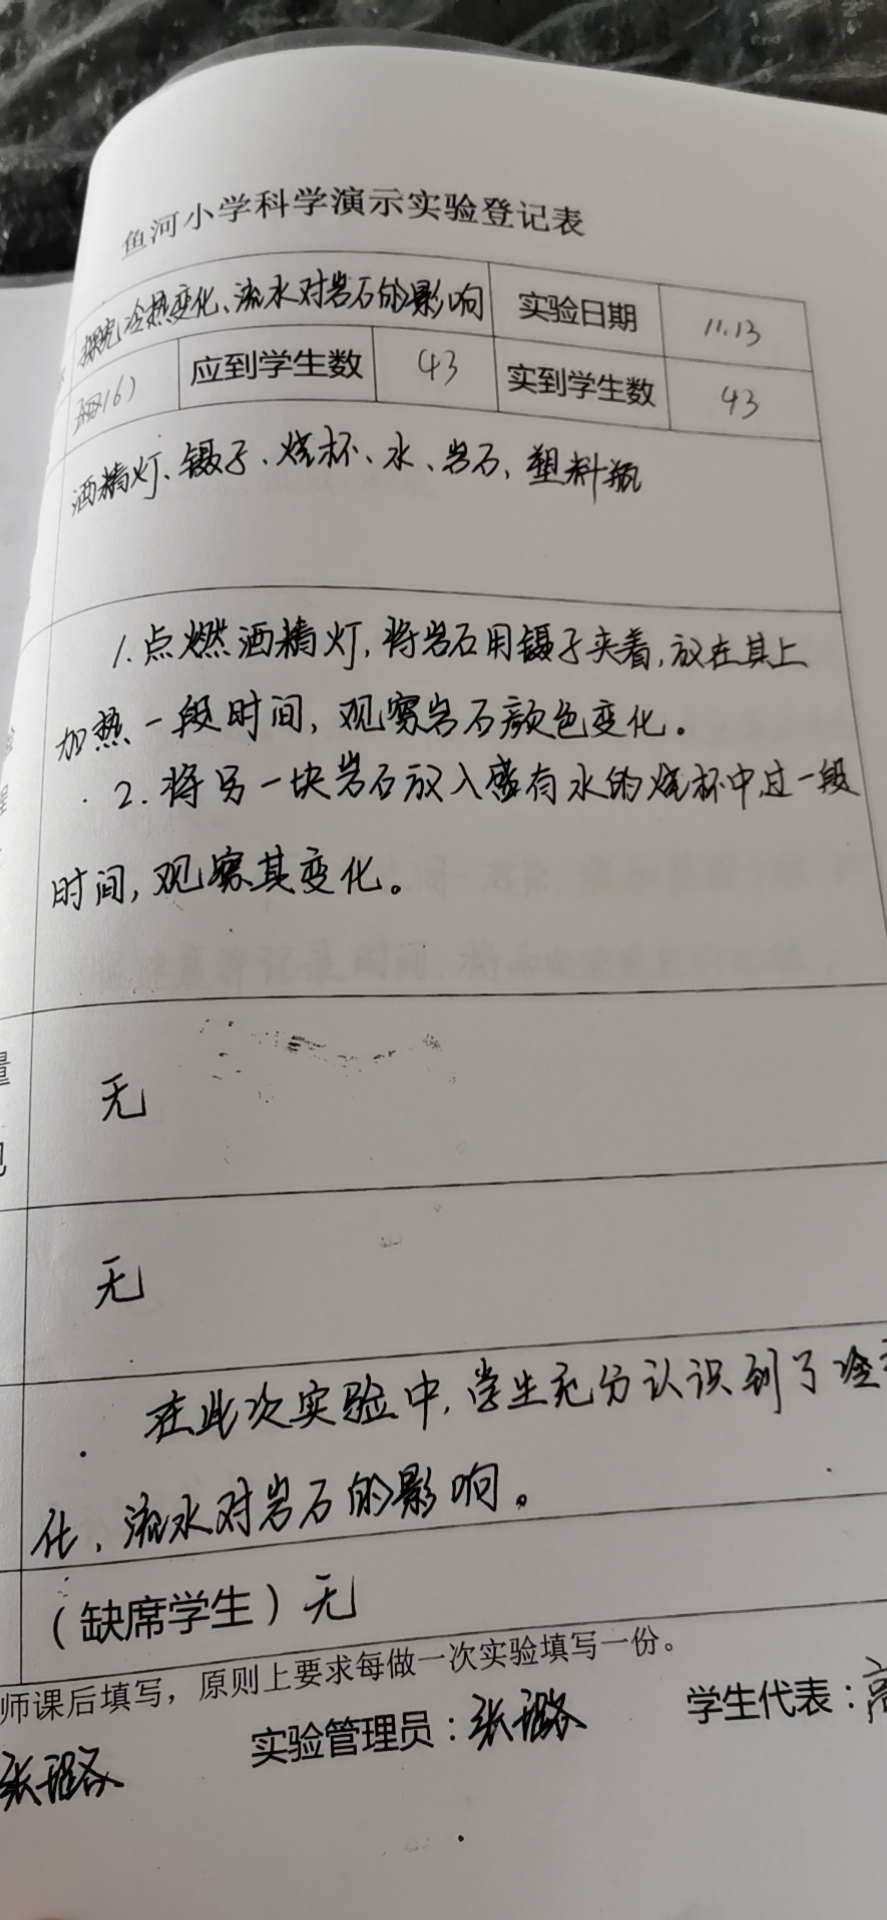 鱼河小学科学演示实验登记表
探究冷热变化、流水对岩石的影响 实验日期 11.13
(6) 应到学生数 43 实到学生数 43
酒精灯、镊子、烧杯、水、岩石、塑料瓶
1.点燃酒精灯,将岩石用镊子夹着,放在其上
加热一段时间,观察岩石颜色变化。
2.将另一块岩石放入盛有水的烧杯中,过一段
时间,观察其变化。
量
无
无
在此次实验中,学生充分认识到了冷
化、流水对岩石的影响。
(缺席学生)无
师课后填写,原则上要求每做一次实验填写一份。
张璐 实验管理员:张璐 学生代表:高